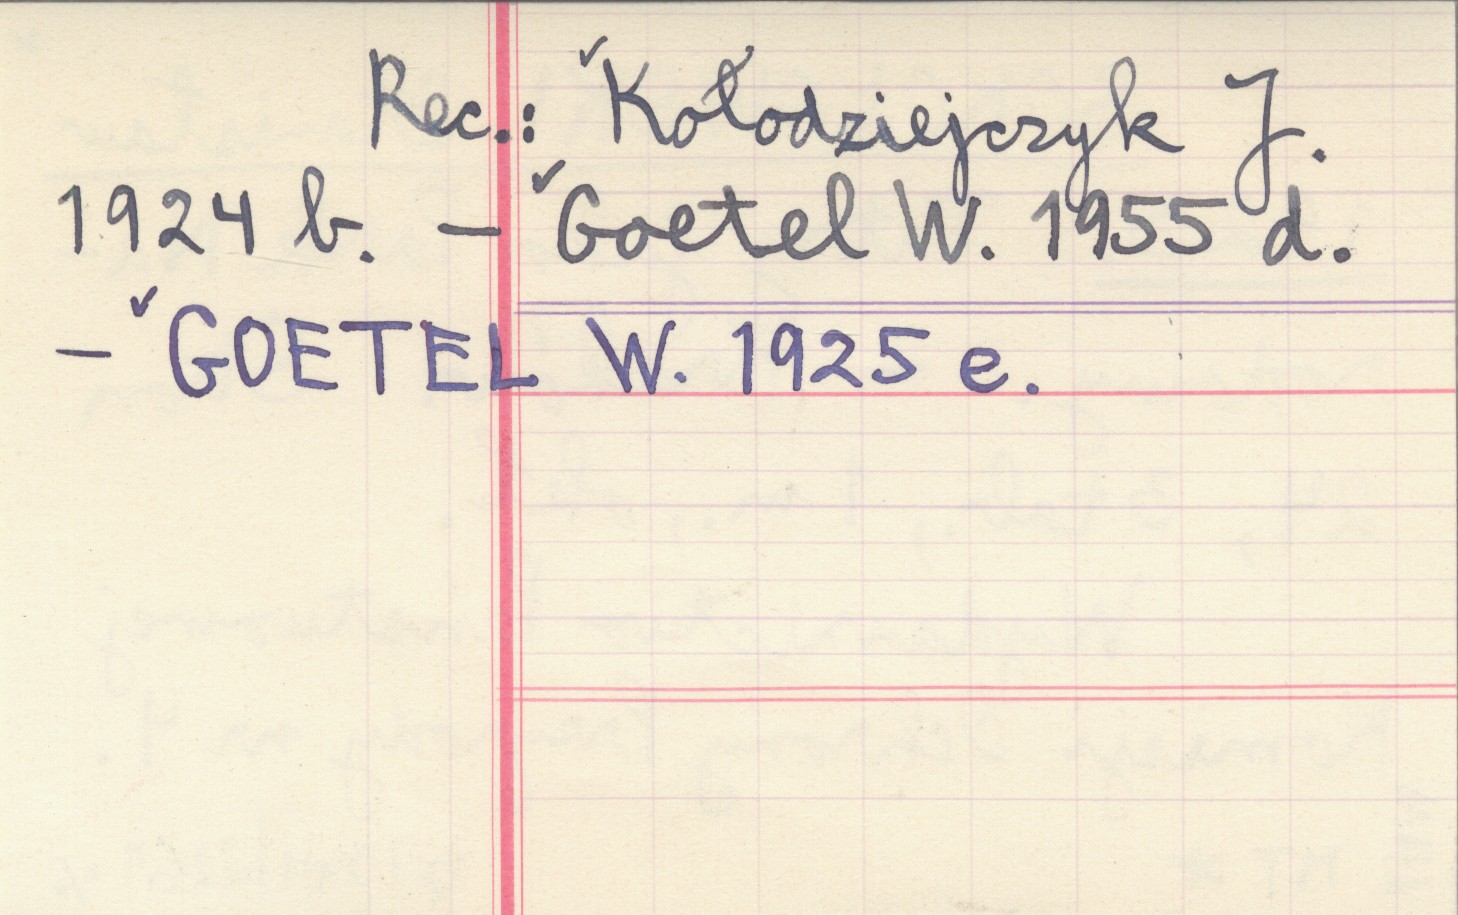 Rec.: ✓Kołodziejczyk J.
1924 b. – ✓Goetel W. 1955 d.
– ✓GOETEL W. 1925 e.